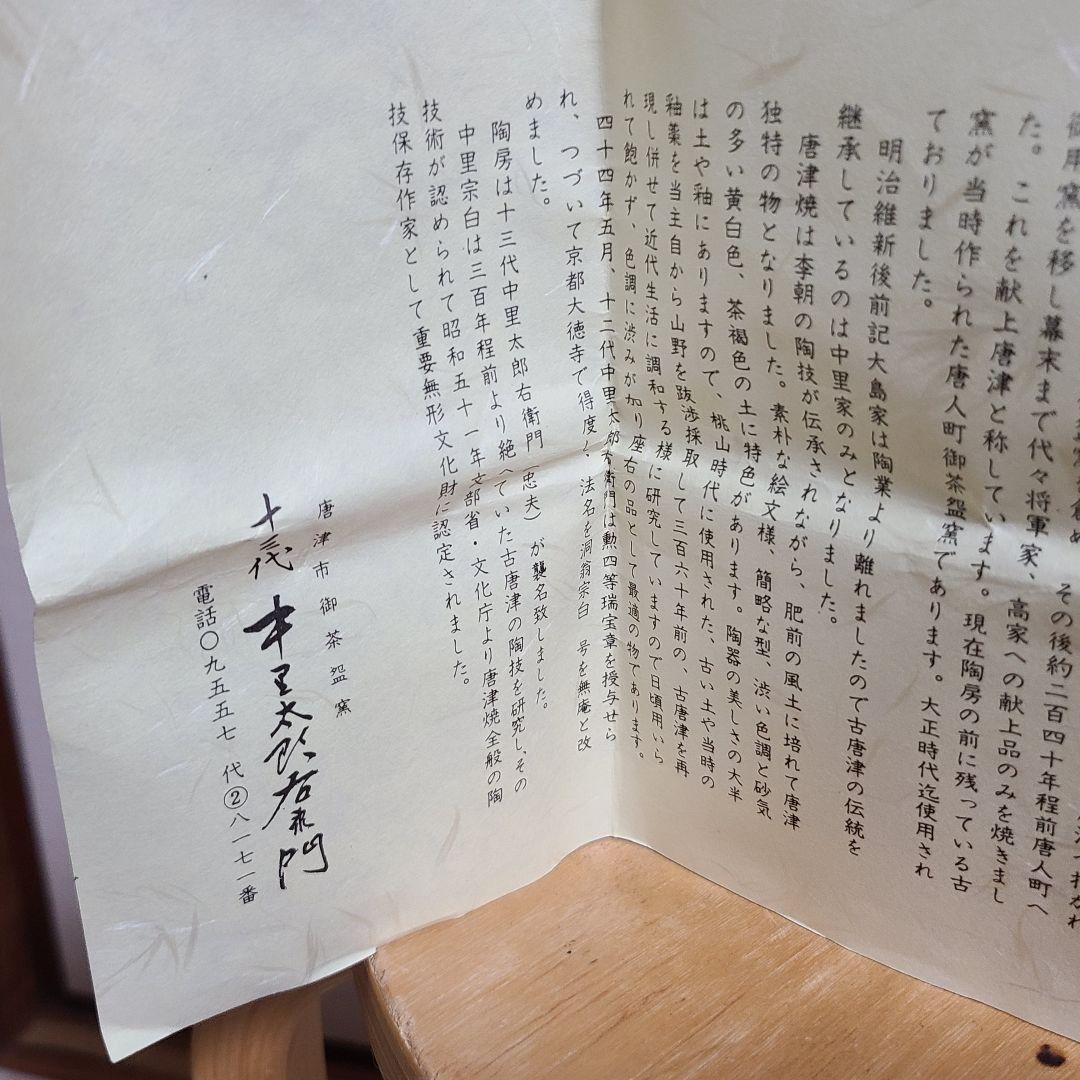 御用窯を移し幕末まで代々将軍家、高家への献上品のみを焼きまし
た。これを献上唐津と称しています。現在陶房の前に残っている古
窯が当時作られた唐人町御茶盌窯であります。大正時代迄使用され
ておりました。
明治維新後前記大島家は陶業より離れましたので古唐津の伝統を
継承しているのは中里家のみとなりました。
唐津焼は李朝の陶技が伝承されながら、肥前の風土に培れて唐津
独特の物となりました。素朴な絵文様、簡略な型、渋い色調と砂気
の多い黄白色、茶褐色の土に特色があります。陶器の美しさの大半
は土や釉にありますので、桃山時代に使用された、古い土や当時の
釉薬を当主自から山野を跋渉採取して三百六十年前の、古唐津を再
現し併せて近代生活に調和する様に研究していますので日頃用いら
れて飽かず、色調に渋みが加り座右の品として最適の物であります。
四十四年五月、十二代中里太郎右衛門は勲四等瑞宝章を授与せら
れ、つづいて京都大徳寺で得度し、法名を洞翁宗白 号を無庵と改
めました。
陶房は十三代中里太郎右衛門(忠夫)が襲名致しました。
中里宗白は三百年程前より絶へていた古唐津の陶技を研究し、その
技術が認められて昭和五十一年文部省・文化庁より唐津焼全般の陶
技保存作家として重要無形文化財に認定されました。
唐津市御茶盌窯
十三代 中里太郎右衛門
電話〇九五五七 代②八一七一番